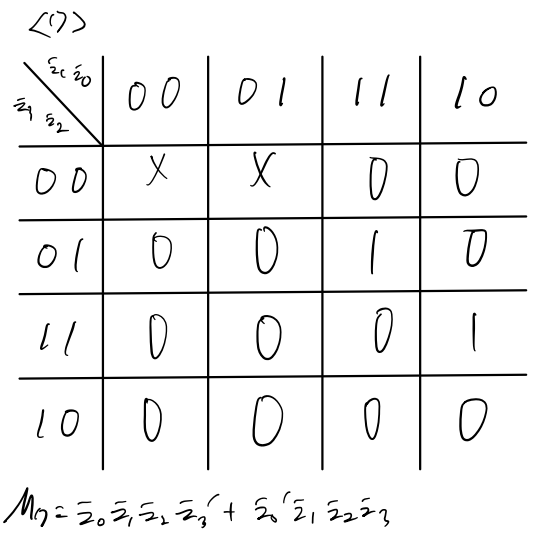 <17>
z₁ z₀
z₃ z₂
00 01 11 10
00 X X 0 0
01 0 0 1 0
11 0 0 0 1
10 0 0 0 0
M₁₇ = z̄₀ z̄₁ z̄₂ z̄₃' + z̄₀' z̄₁ z̄₂ z̄₃